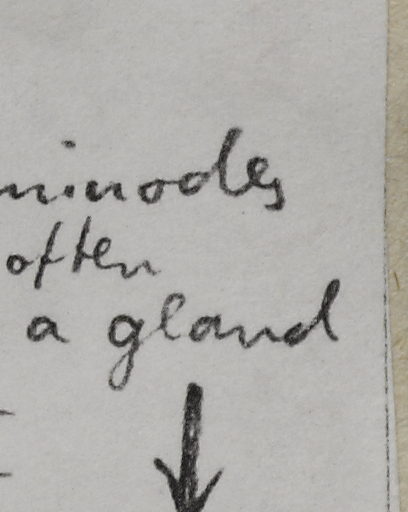 minodes
often
a gland